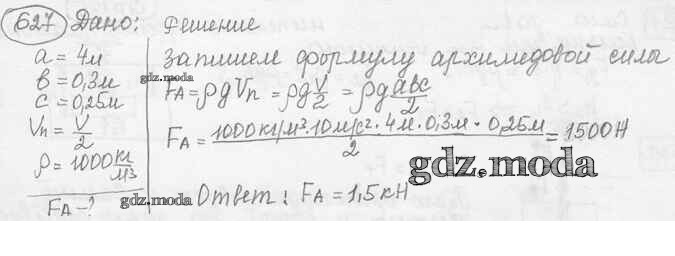 627 Дано:
a = 4м
в = 0,3м
c = 0,25м
Vп = V/2
ρ = 1000 кг/м³
FA - ?
Решение
Запишем формулу архимедовой силы
gdz.moda
FA = ρgVп = ρg V/2 = ρg abc/2
FA = 1000кг/м³·10м/с²·4м·0,3м·0,25м/2 = 1500Н
gdz.moda
Ответ: FA = 1,5кН
gdz.moda